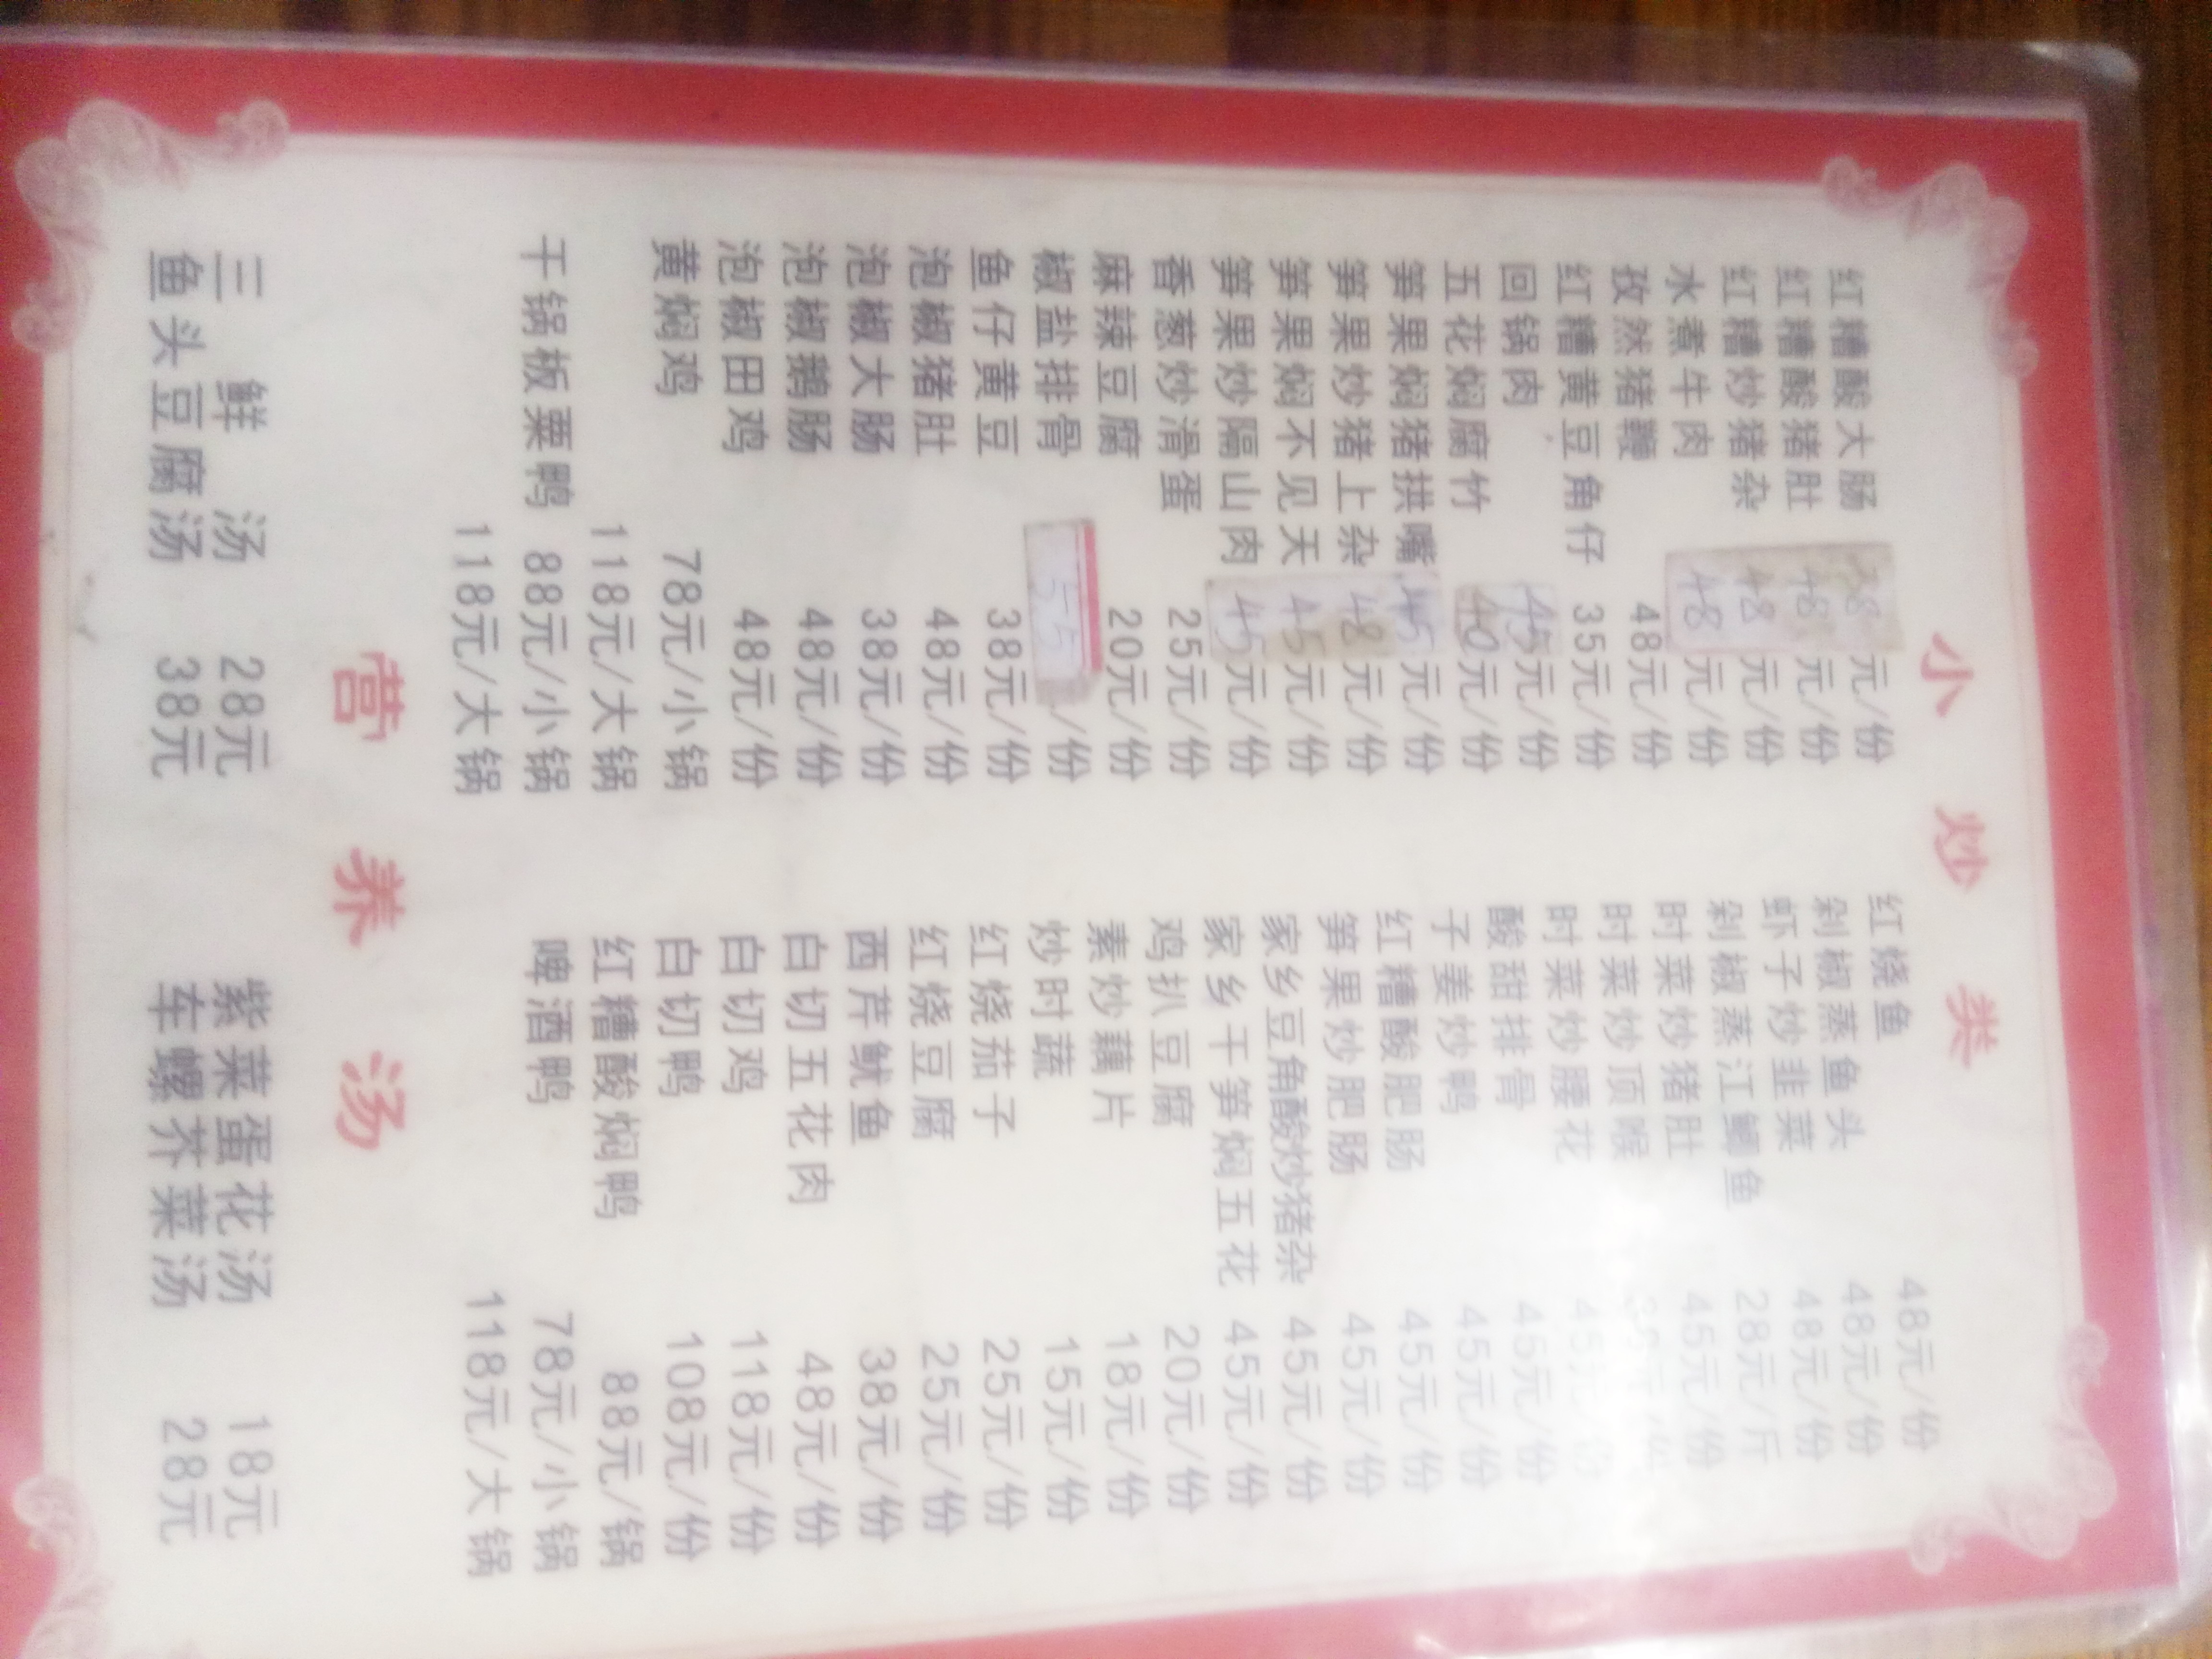 小炒类
红糟酸大肠 元/份
红糟酸猪肚 48元/份
红糟炒猪杂 48元/份
水煮牛肉 48元/份
孜然猪鞭 48元/份
红糟黄豆角仔 35元/份
回锅肉 45元/份
五花焖腐竹 40元/份
笋果焖猪拱嘴 45元/份
笋果炒猪上杂 48元/份
笋果焖不见天 45元/份
笋果炒隔山肉 45元/份
香葱炒滑蛋 25元/份
麻辣豆腐 20元/份
椒盐排骨 55/份
鱼仔黄豆 38元/份
泡椒猪肚 48元/份
泡椒大肠 38元/份
泡椒鹅肠 48元/份
泡椒田鸡 48元/份
黄焖鸡 78元/小锅
118元/大锅
干锅板栗鸭 88元/小锅
118元/大锅
红烧鱼 48元/份
剁椒蒸鱼头 48元/份
虾子炒韭菜 48元/份
剁椒蒸江鲫鱼 28元/斤
时菜炒猪肚 45元/份
时菜炒顶喉
时菜炒腰花 45元/份
酸甜排骨 45元/份
子姜炒鸭 45元/份
红糟酸肥肠 45元/份
笋果炒肥肠 45元/份
家乡豆角酸炒猪杂 45元/份
家乡干笋焖五花 45元/份
鸡扒豆腐 20元/份
素炒藕片 18元/份
炒时蔬 15元/份
红烧茄子 25元/份
红烧豆腐 25元/份
西芹鱿鱼 38元/份
白切五花肉 48元/份
白切鸡 118元/份
白切鸭 108元/份
红糟酸焖鸭 88元/锅
啤酒鸭 78元/小锅
118元/大锅
营养汤
三鲜汤 28元
鱼头豆腐汤 38元
紫菜蛋花汤 18元
车螺芥菜汤 28元